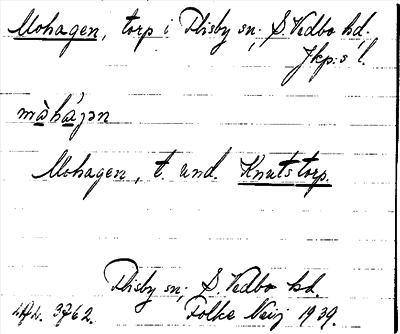 Mohagen, torp i Flisby sn, S. Vedbo hd.
Jkp:s l.
mòhàgən
Mohagen, t. und. Knutstorp.
Flisby sn, S. Vedbo hd.
3762. Folke Neij 1939.